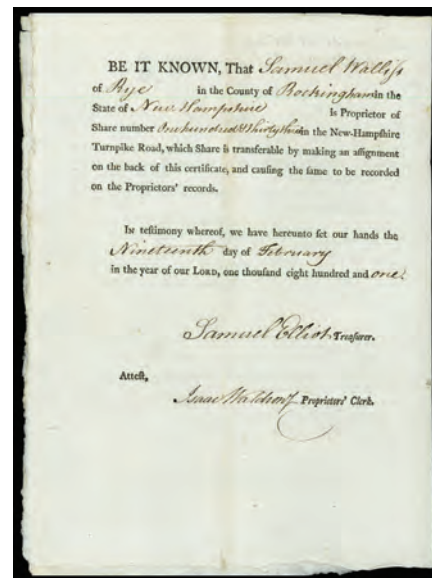 BE IT KNOWN, That Samuel Walliſs
of Rye in the County of Rockingham in the
State of New Hampshire Is Proprietor of
Share number One hundred & thirty three in the New-Hampſhire
Turnpike Road, which Share is tranſferable by making an aſſignment
on the back of this certificate, and cauſing the ſame to be recorded
on the Proprietors' records.
In teſtimony whereof, we have hereunto ſet our hands the
Nineteenth day of February
in the year of our LORD, one thouſand eight hundred and one.
Samuel Elliot Treaſurer.
Atteſt,
Isaac Waldron Proprietors' Clerk.